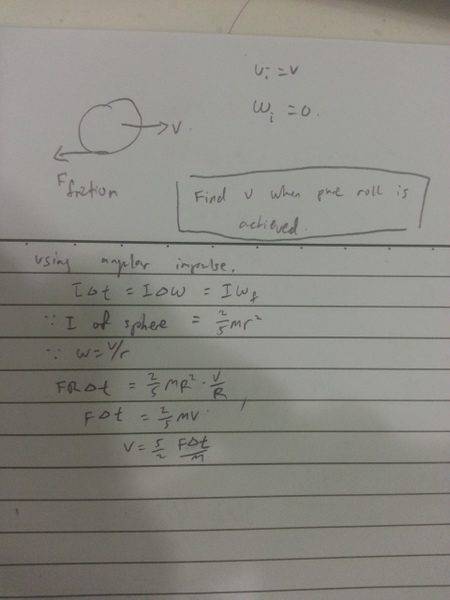 v_i = v
ω_i = 0.
→ V
F_friction
Find v when pure roll is
achieved.
using angular impulse.
IΔt = IΔω = Iω_f
∵ I of sphere = 2/5 mr²
∵ ω = v/r
FRΔt = 2/5 MR² · V/R
FΔt = 2/5 MV
V = 5/2 FΔt/M